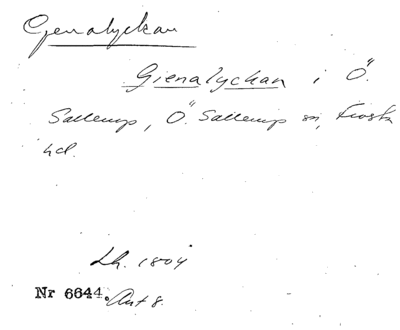 Genalyckan
Gienalyckan i Ö.
Sallerup, Ö. Sallerup sn, Frosta
hd.
Lh. 1804
Nr 6644. Ant 8.